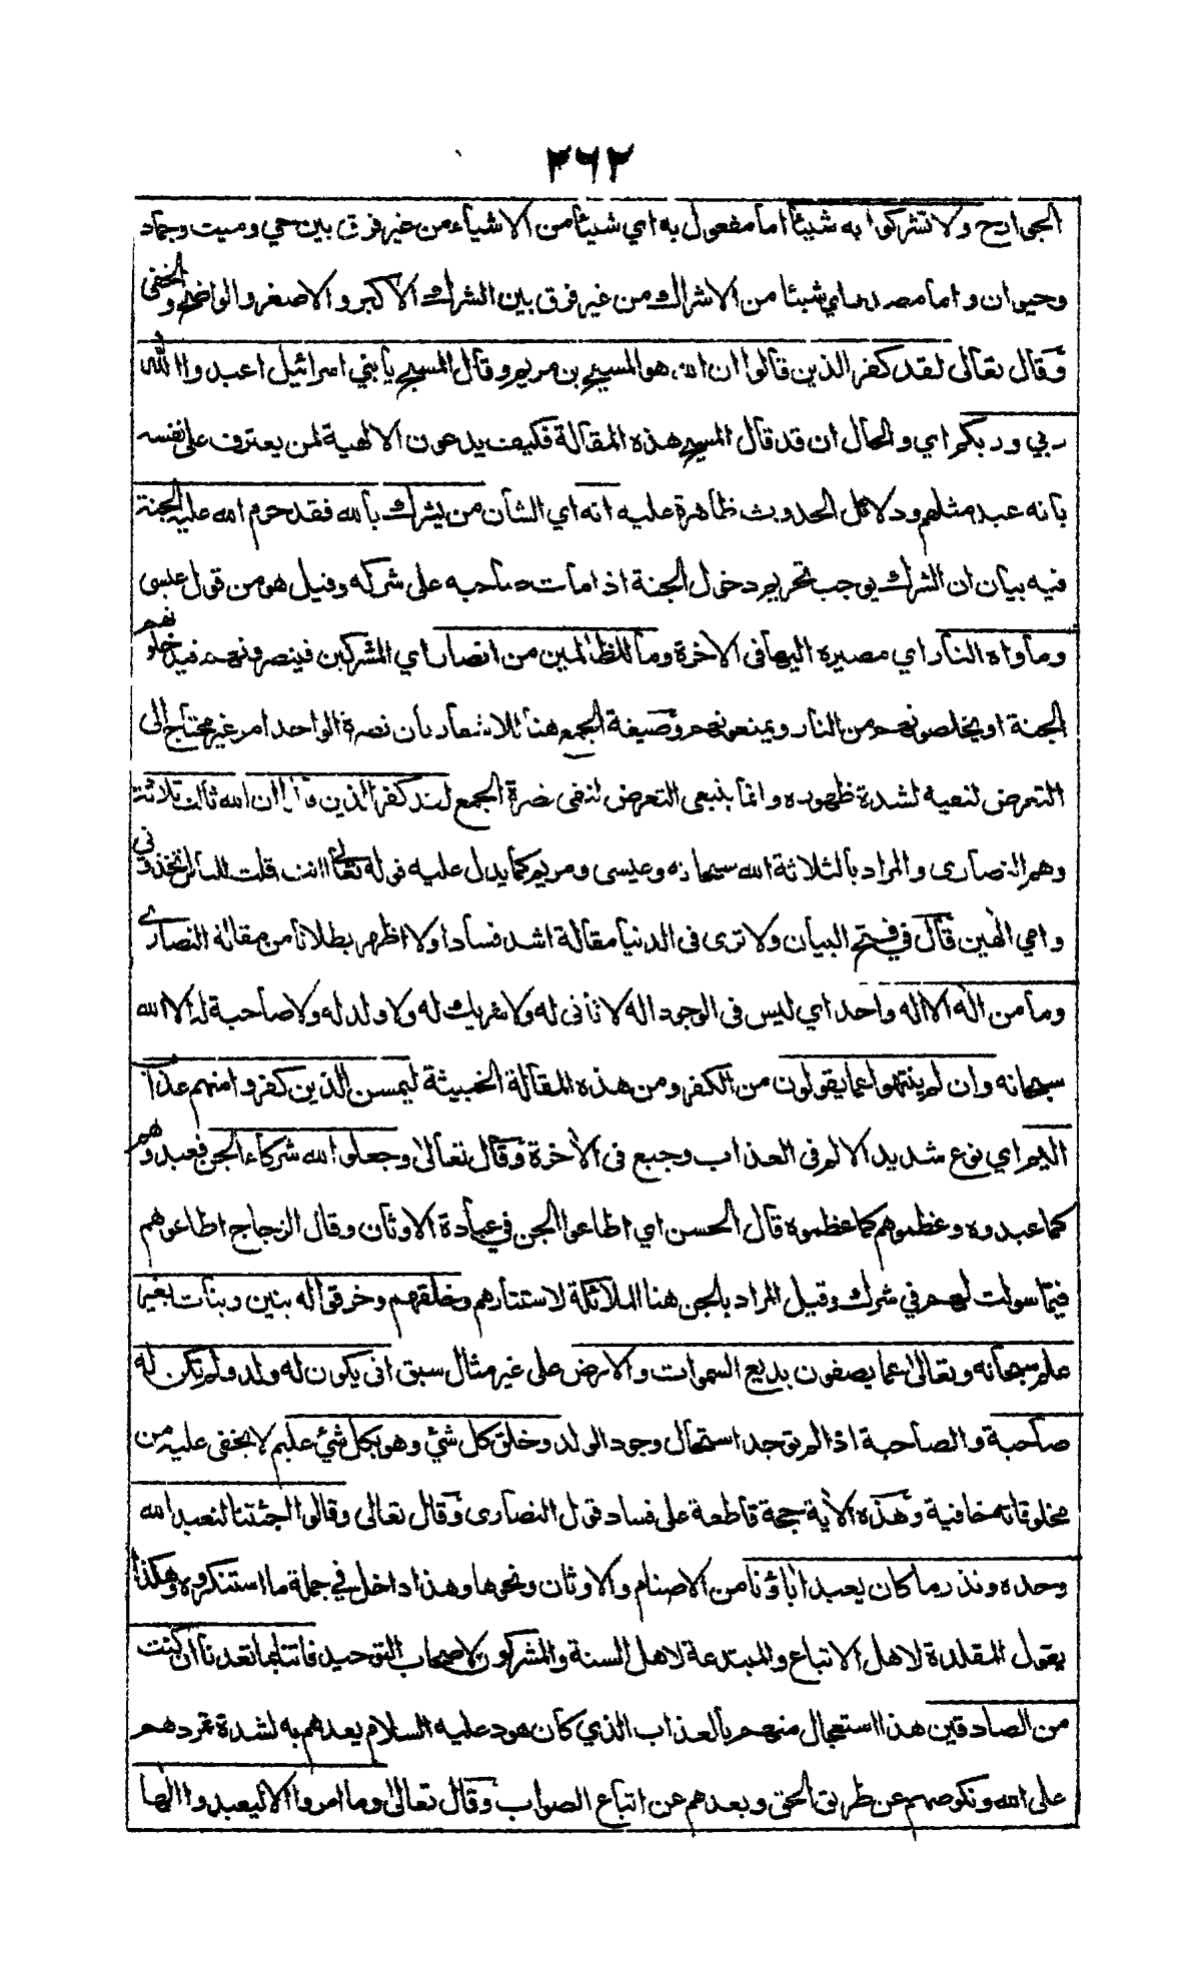 ٢٦٢
الجوارح ولا تشركوا به شيئا اما مفعول به اي شيئا من الاشياء من غير فرق بين حي وميت وجماد
وحيوان واما مصدر اي شيئا من الاشراك من غير فرق بين الشرك الاكبر والاصغر والواضح والخفي
وقال تعالى لقد كفر الذين قالوا ان الله هو المسيح بن مريم وقال المسيح يا بني اسرائيل اعبدوا الله
ربي وربكم اي والحال ان قد قال المسيح هذه المقالة فكيف يدعون الالهية لمن يعترف على نفسه
بانه عبد مثلهم ودلائل الحدوث ظاهرة عليه انه اي الشأن من يشرك بالله فقد حرم الله عليه الجنة
فيه بيان ان الشرك يوجب تحريم دخول الجنة اذا مات صاحبه على شركه وقيل هو من قول عيسى
وماواه النار اي مصيره اليها في الآخرة وما للظالمين من انصار اي المشركين فينصرونهم فيدخلونهم
الجنة او يخلصونهم من النار ويمنعونهم وصيغة الجمع هنا للاشعار بان نصرة الواحد امر غير محتاج الى
التعرض لنفيه لشدة ظهوره وانما ينبغي التعرض لنفي نصرة الجمع لقد كفر الذين قالوا ان الله ثالث ثلاثة
وهم النصارى والمراد بالثلاثة الله سبحانه وعيسى ومريم كما يدل عليه قوله تعالى اانت قلت للناس اتخذوني
وامي الهين قال في فتح البيان ولا ترى في الدنيا مقالة اشد فسادا ولا اظهر بطلانا من مقالة النصارى
وما من اله الا اله واحد اي ليس في الوجود اله لا ثاني له ولا شريك له ولا ولد له ولا صاحبة له الا الله
سبحانه وان لم ينتهوا عما يقولون من الكفر ومن هذه المقالة الخبيثة ليمسن الذين كفروا منهم عذاب
اليم اي نوع شديد الالم في العذاب وجيع في الآخرة وقال تعالى وجعلوا لله شركاء الجن فعبدوهم
كما عبدوه وعظموهم كما عظموه قال الحسن اي اطاعوا الجن في عبادة الاوثان وقال الزجاج اطاعوهم
فيما سولت لهم في شرك وقيل المراد بالجن هنا الملائكة لاستتارهم وخلقهم وخرقوا له بنين وبنات بغير
علم سبحانه وتعالى عما يصفون بديع السموات والارض على غير مثال سبق انى يكون له ولد ولم تكن له
صاحبة والصاحبة اذا لم توجد استحال وجود الولد وخلق كل شئ وهو بكل شئ عليم لا يخفى عليه من
مخلوقاته خافية وهذه الآية حجة قاطعة على فساد قول النصارى وقال تعالى وقالوا اجئتنا لنعبد الله
وحده ونذر ما كان يعبد اباؤنا من الاصنام والاوثان ونحوها وهذا داخل في جملة ما استنكروه وهكذا
يقول المقلدة لاهل الاتباع والمبتدعة لاهل السنة والمشركون لاصحاب التوحيد فاتنا بما تعدنا ان كنت
من الصادقين هذا استعجال منهم بالعذاب الذي كان هود عليه السلام يعدهم به لشدة تمردهم
على الله ونكوصهم عن طريق الحق وبعدهم عن اتباع الصواب وقال تعالى وما امروا الا ليعبدوا الها